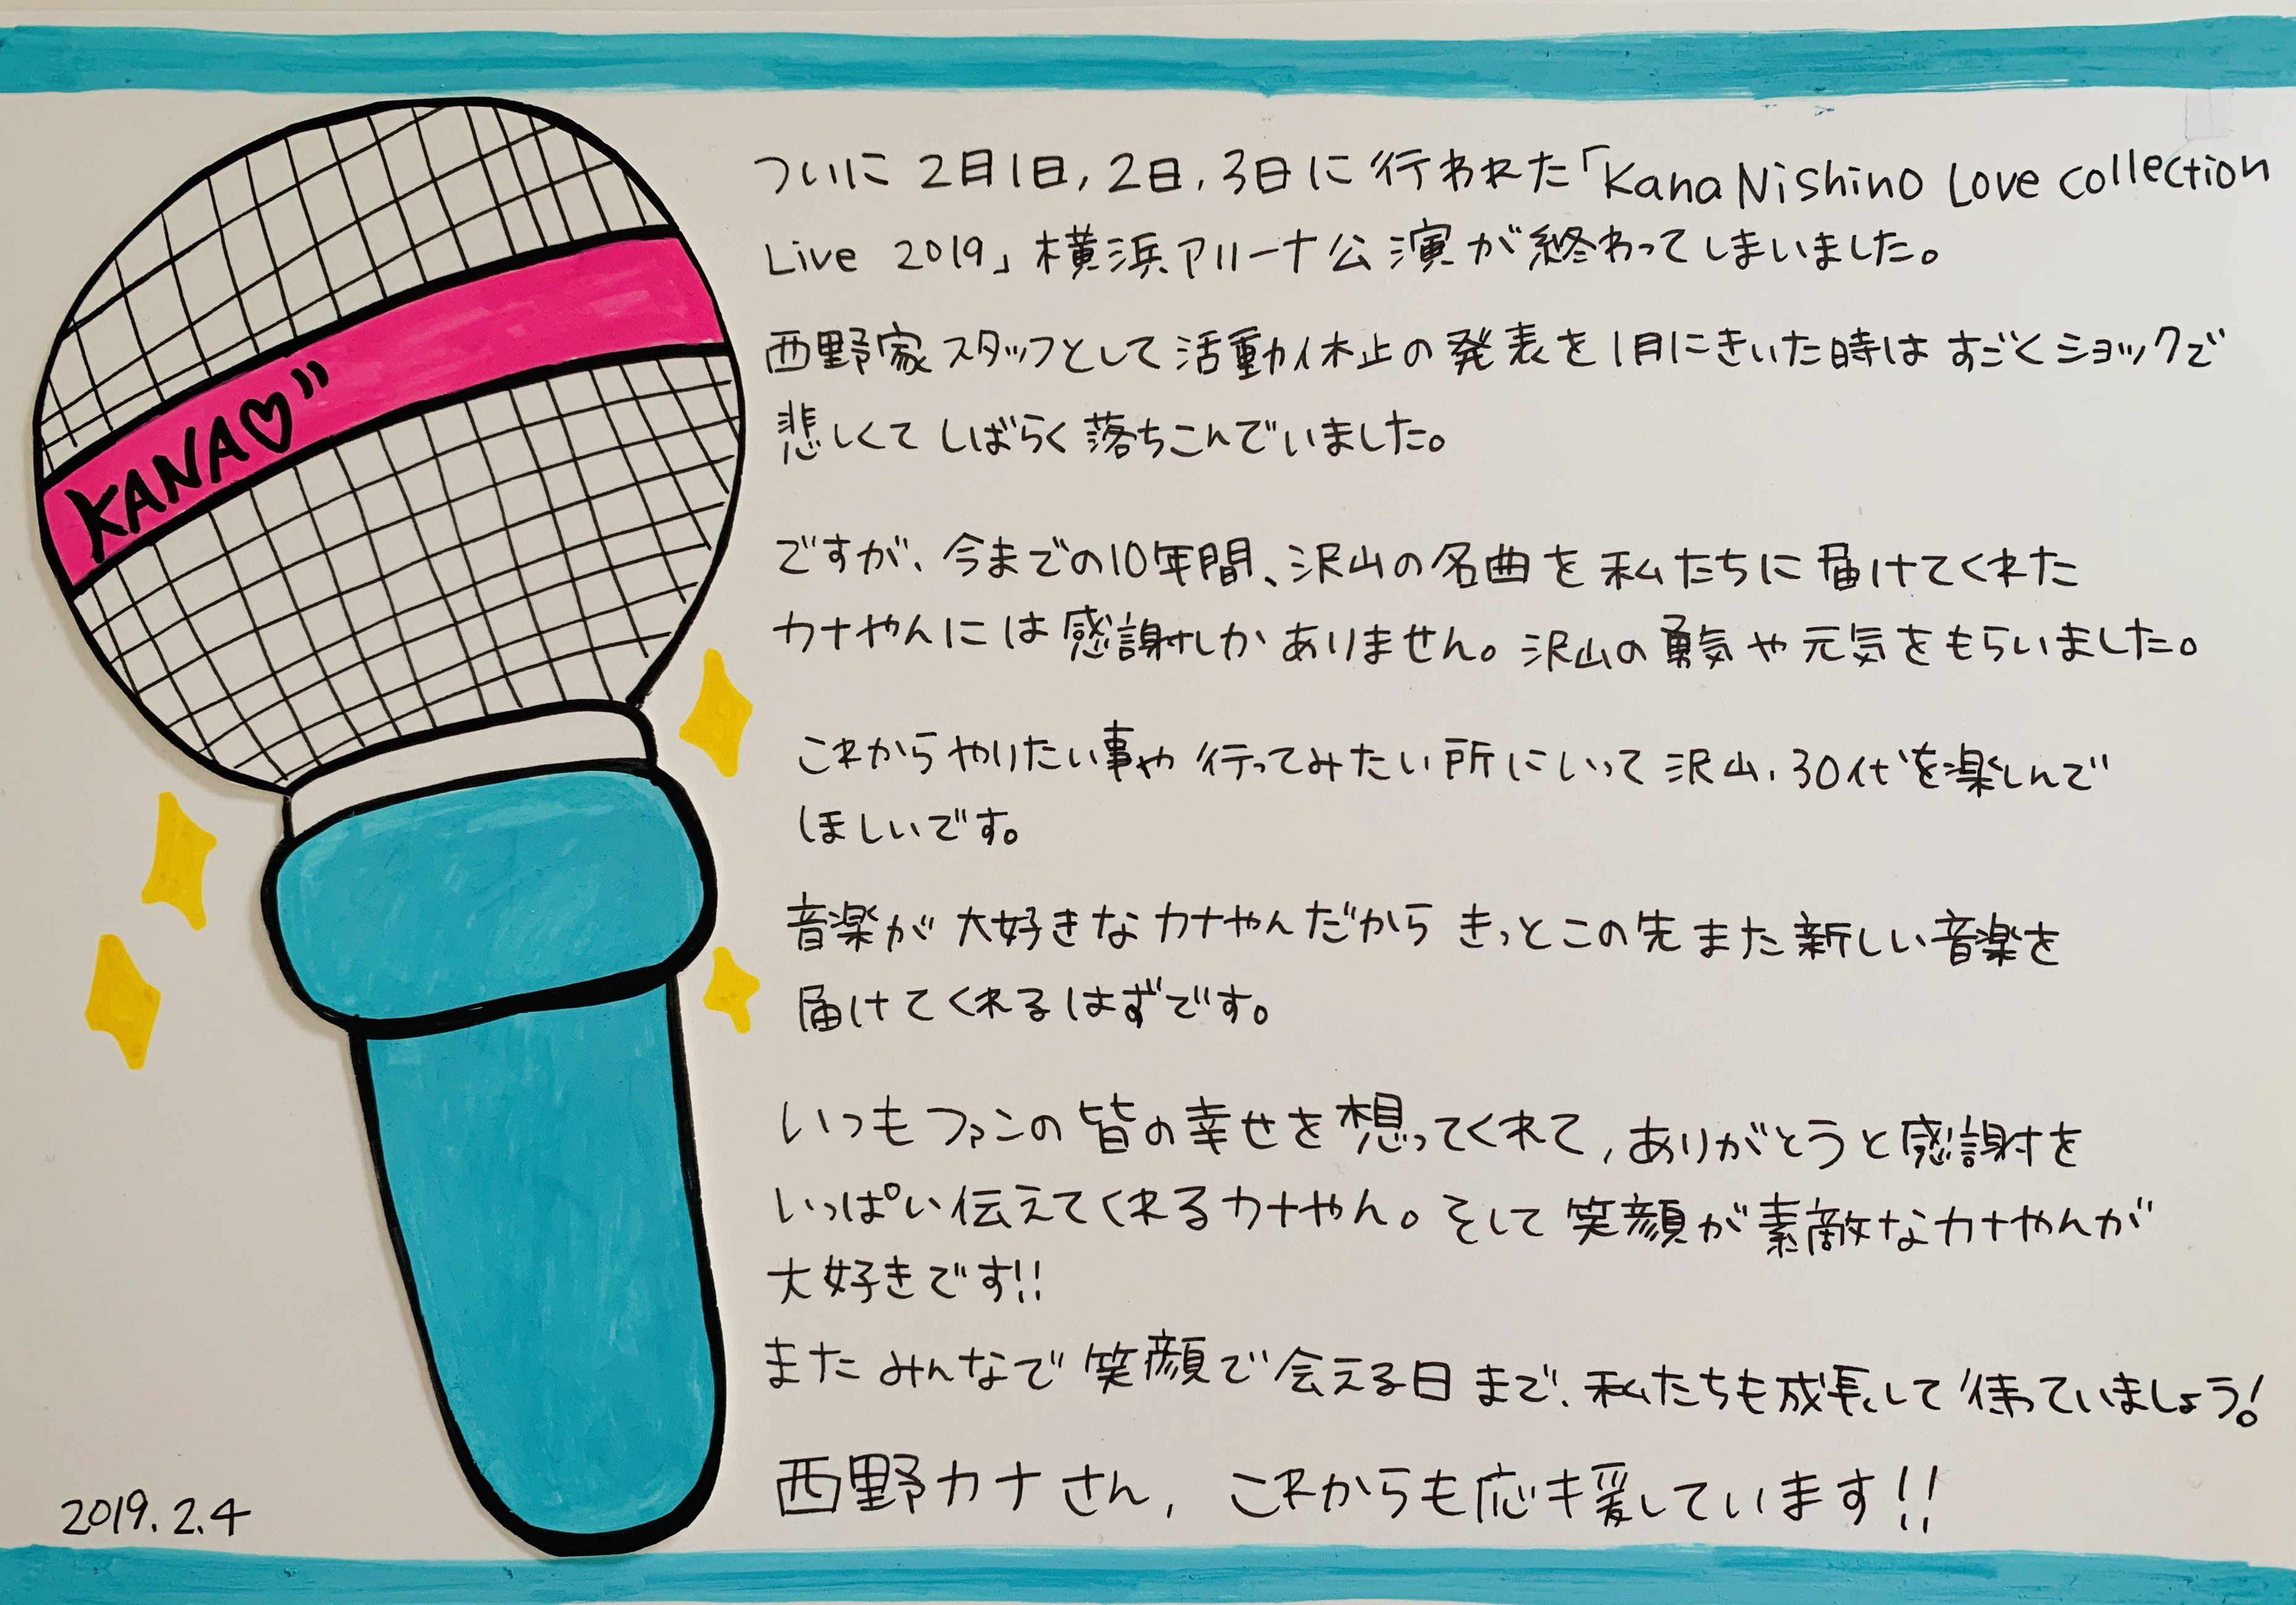 KANA♡"
ついに2月1日,2日,3日に行われた「Kana Nishino Love collection
Live 2019」横浜アリーナ公演が終わってしまいました。
西野家スタッフとして活動休止の発表を1月にきいた時はすごくショックで
悲しくてしばらく落ちこんでいました。
ですが、今までの10年間、沢山の名曲を私たちに届けてくれた
カナやんには感謝しかありません。沢山の勇気や元気をもらいました。
これからやりたい事や行ってみたい所にいって沢山、30代を楽しんで
ほしいです。
音楽が大好きなカナやんだからきっとこの先また新しい音楽を
届けてくれるはずです。
いつもファンの皆の幸せを想ってくれて,ありがとうと感謝を
いっぱい伝えてくれるカナやん。そして笑顔が素敵なカナやんが
大好きです!!
またみんなで笑顔で会える日まで、私たちも成長して待っていましょう!
西野カナさん,これからも応援しています!!
2019.2.4